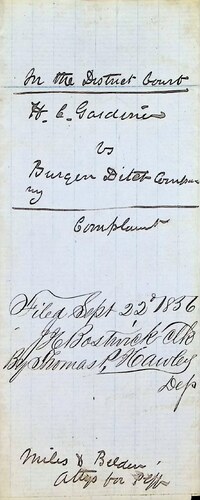 In the District Court
H. C. Gardiner
vs
Burgen Ditch Compa
ny
Complaint
Filed Sept 22d 1856
J H Bostwick Clk
By Thomas P Hawley
Dep
Miles & Belden
Attys for Plff